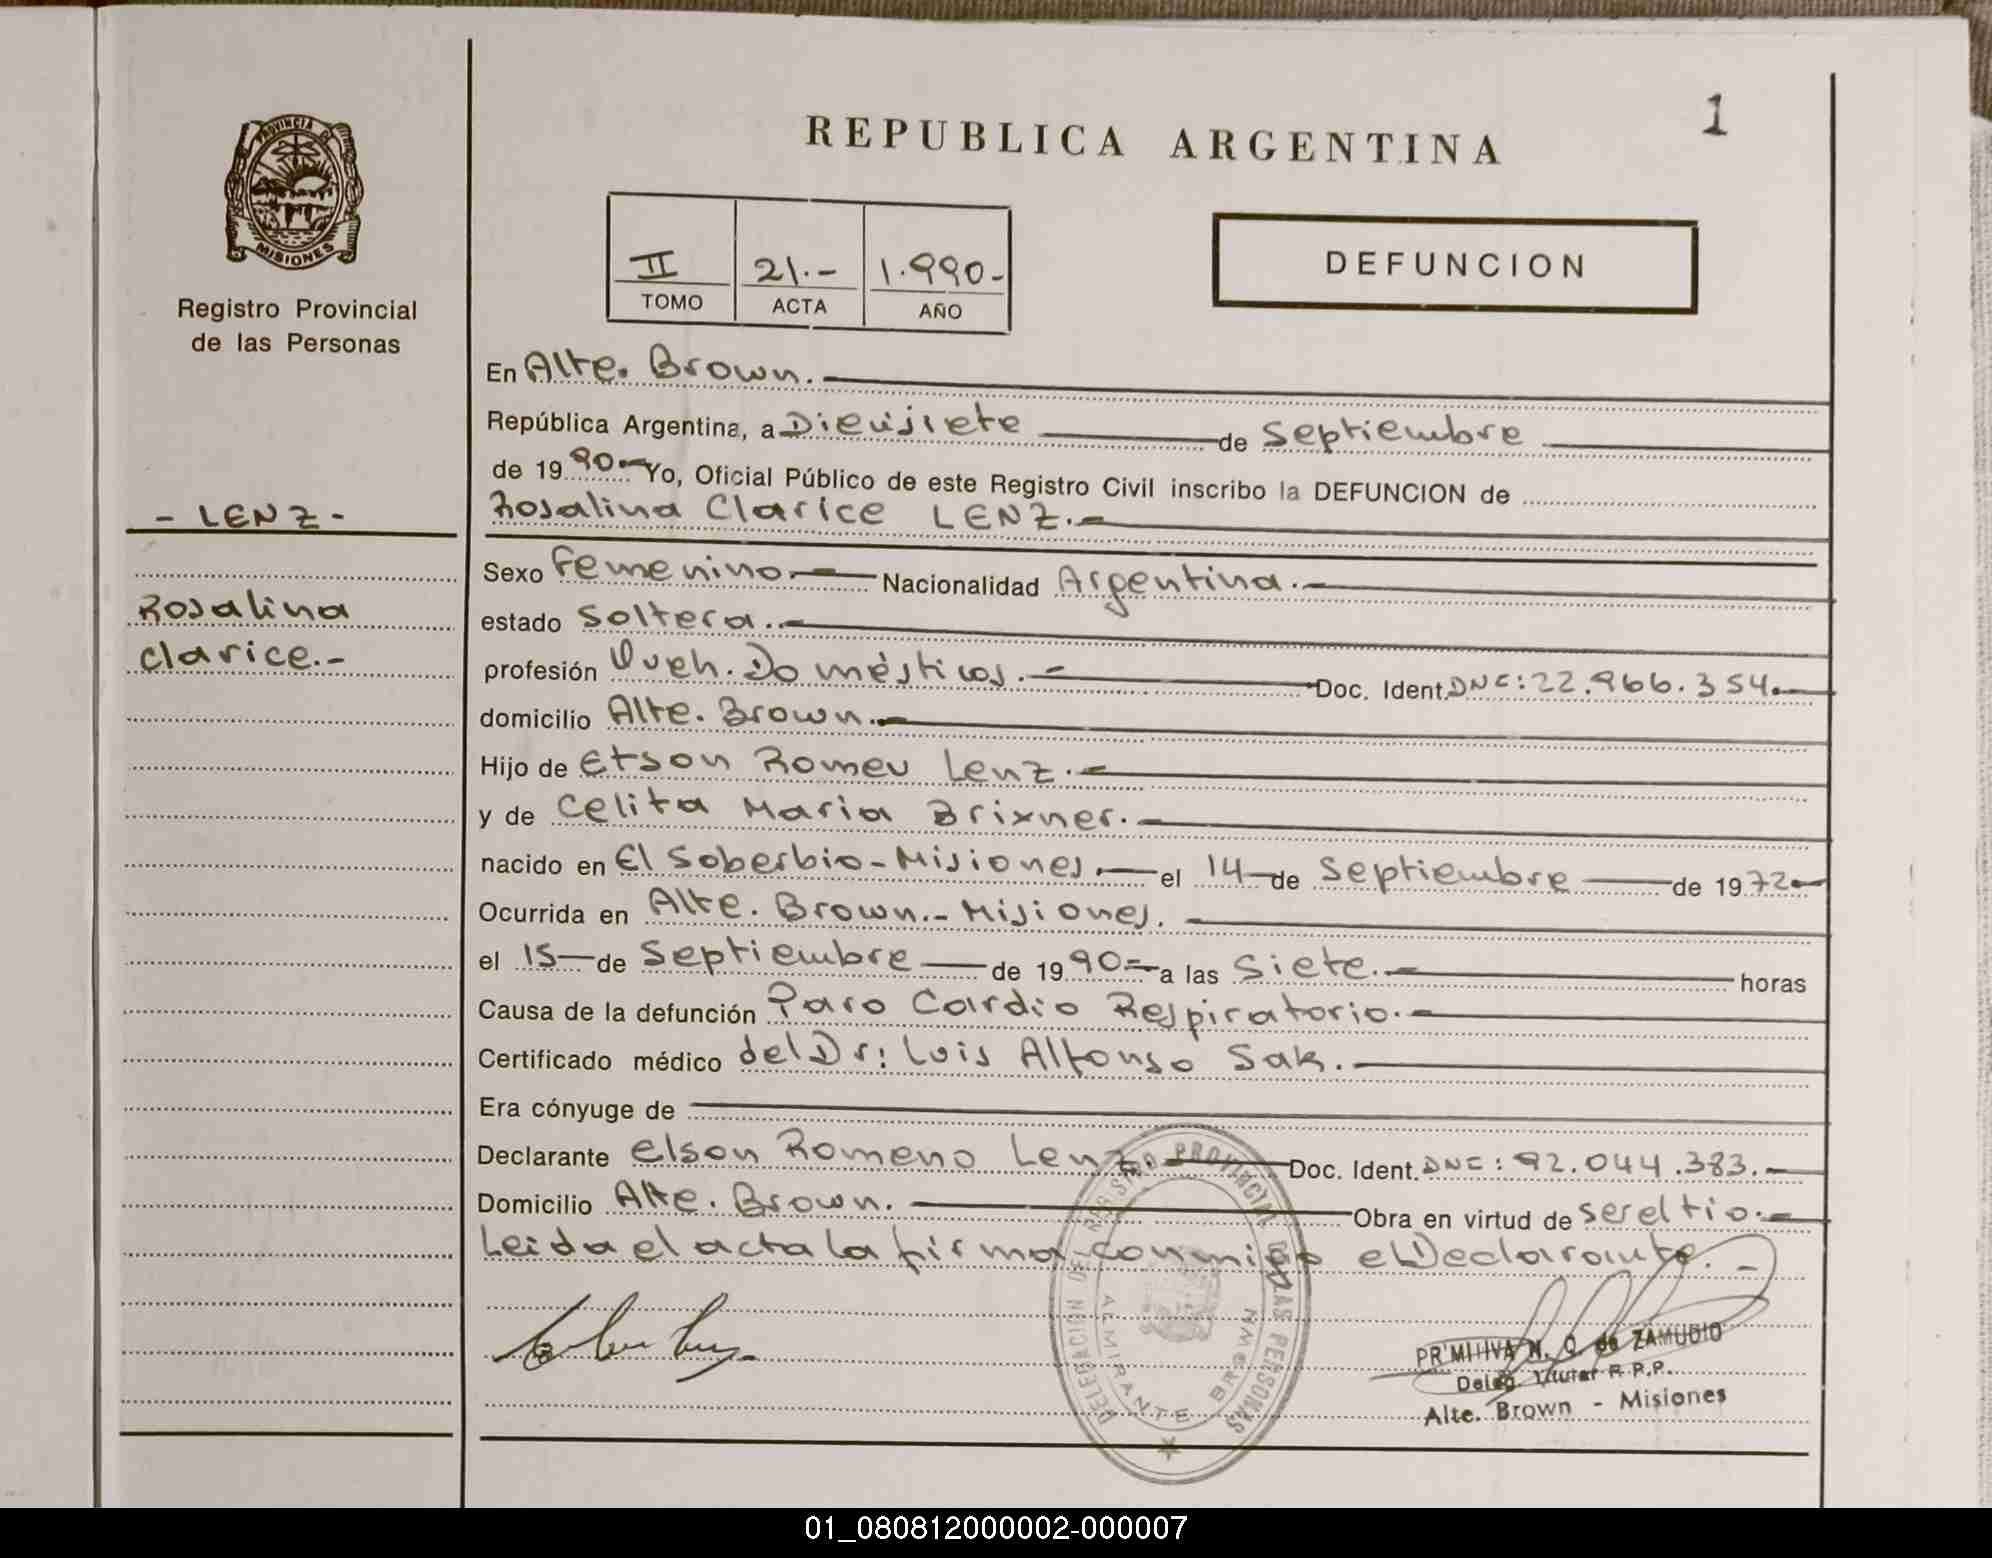 REPUBLICA ARGENTINA
1
PROVINCIA DE
MISIONES
Registro Provincial
de las Personas
II
21.-
1.990-
TOMO
ACTA
AÑO
DEFUNCION
- LENZ -
Rosalina
Clarice.-
En Alte. Brown.
República Argentina, a Diecisiete de Septiembre
de 1990.- Yo, Oficial Público de este Registro Civil inscribo la DEFUNCION de
Rosalina Clarice LENZ.-
Sexo Femenino.- Nacionalidad Argentina.-
estado Soltera.-
profesión Queh. Domésticos.- Doc. Ident. DNE: 22.966.354.-
domicilio Alte. Brown.-
Hijo de Etson Romeu Lenz.-
y de Celita Maria Brixner.-
nacido en El Soberbio - Misiones.- el 14 de Septiembre de 1972.-
Ocurrida en Alte. Brown.- Misiones.
el 15 de Septiembre de 1990.- a las Siete.- horas
Causa de la defunción Paro Cardio Respiratorio.-
Certificado médico del Dr: Luis Alfonso Sak.-
Era cónyuge de
Declarante Elson Romeno Lenz.- Doc. Ident. DNE: 92.044.383.-
Domicilio Alte. Brown. Obra en virtud de ser el tio.-
Leida el acta la firma conmigo el Declarante.-
DELEGACION DE REGISTRO PROVINCIAL DE LAS PERSONAS
ALMIRANTE BROWN
PRIMITIVA N. O. de ZAMUDIO
Deleg. Titular R.P.P.
Alte. Brown - Misiones
01_080812000002-000007